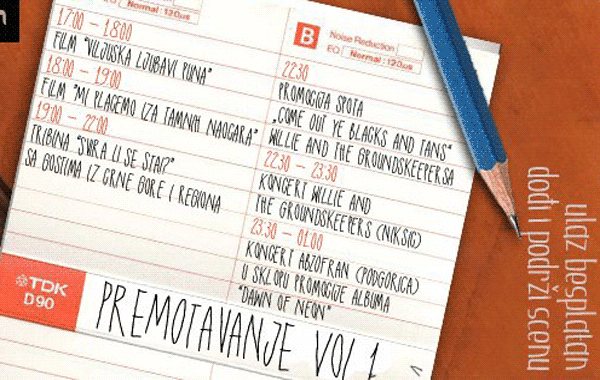 17:00 - 18:00
FILM "VILJUSKA LJUBAVI PUNA"
18:00 - 19:00
FILM "MI PLAČEMO IZA TAMNIH NAOČARA"
19:00 - 22:00
TRIBINA "SVIRA LI SE STA?"
SA GOSTIMA IZ CRNE GORE I REGIONA
Normal: 120us
B
Noise Reduction
EQ Normal: 120us
22:30
PROMOCIJA SPOTA
„COME OUT YE BLACKS AND TANS"
WILLIE AND THE GROUNDSKEEPERSA
22:30 - 23:30
KONCERT WILLIE AND
THE GROUNDSKEEPERS (NIKŠIĆ)
23.30 - 01.00
KONCERT ABZOFRAN (PODGORICA)
U SKLOPU PROMOCIJE ALBUMA
"DAWN OF NEON"
TDK
D90
PREMOTAVANJE VOL 1
ulaz besplatan
dođi i podrži scenu